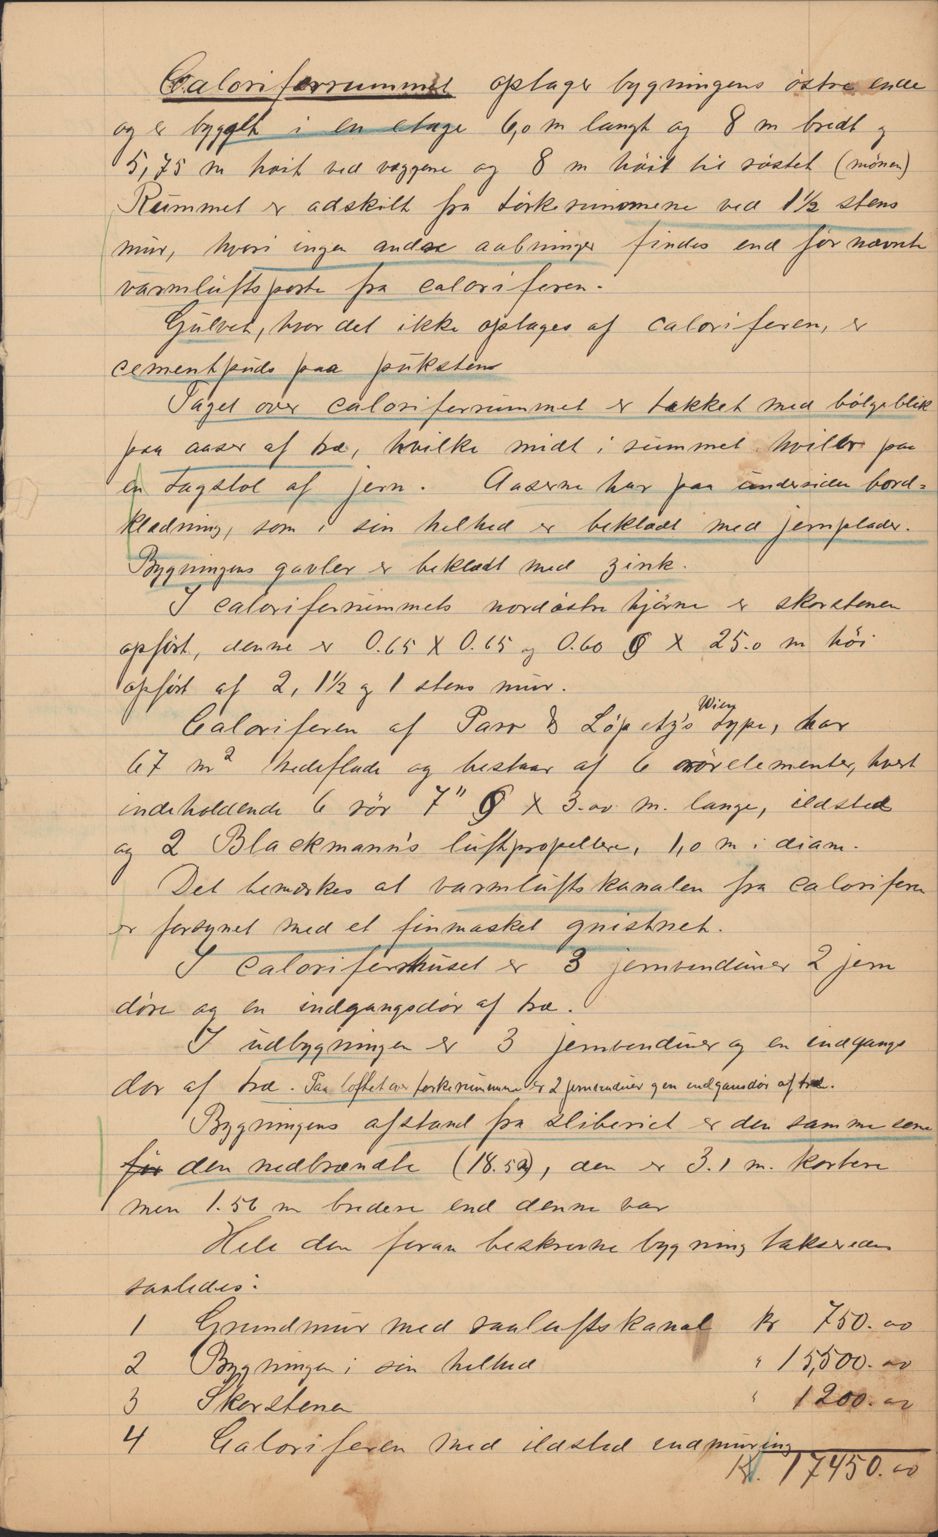 Caloriferrummet optager bygningens østre ende
og er bygget i en etage 6,0 m langt og 8 m bredt og
5,75 m høit ved væggene og 8 m høit til røstet (mønen)
Rummet er adskilt fra tørkerummene ved 1½ stens
mur, hvori ingen andre aabninger findes end førnævnte
varmluftsporte fra caloriferen.
Gulvet, hvor det ikke optages af caloriferen, er
cementpuds paa pukstens
Taget over caloriferrummet er tækket med bølgeblik
paa aaser af træ, hvilke midt i rummet hviler paa
en tagstol af jern. Aaserne har paa undersiden bord=
klædning, som i sin helhed er beklædt med jernplader.
Bygningens gavler er beklædt med zink.
I caloriferrummets nordøstre hjørne er skorstenen
opført, denne er 0.65 X 0.65 og 0.60 φ X 25.0 m høi
opført af 2, 1½ og 1 stens mur.
Wien
Caloriferen af & type, har
67 m² hedeflade og bestaar af 6 rørelementer, hvert
indeholdende 6 rør 7" φ X 3.00 m. lange, ildsted
og 2 Blackmann's luftpropellere, 1,0 m i diam.
Det bemærkes at varmluftskanalen fra caloriferen
er forsynet med et finmasket gnistnet.
I caloriferhuset er 3 jernvinduer 2 jern
døre og en indgangsdør af træ.
I udbygningen er 3 jernvinduer og en indgangs
dør af træ. Paa loftet over tørkerummene er 2 jernvinduer og en indgansdør af træ.
Bygningens afstand fra sliberiet er den samme som
før den nedbrændte (18.50), den er 3.1 m. kortere
men 1.56 m bredere end denne var
Hele den foran beskrevne bygning takseredes
saaledes:
1 Grundmur med raaluftskanal kr 750.00
2 Bygningen i sin helhed " 15,500.00
3 Skorstenen " 1200.00
4 Caloriferen med ildsted indmuring
Kr. 17450.00